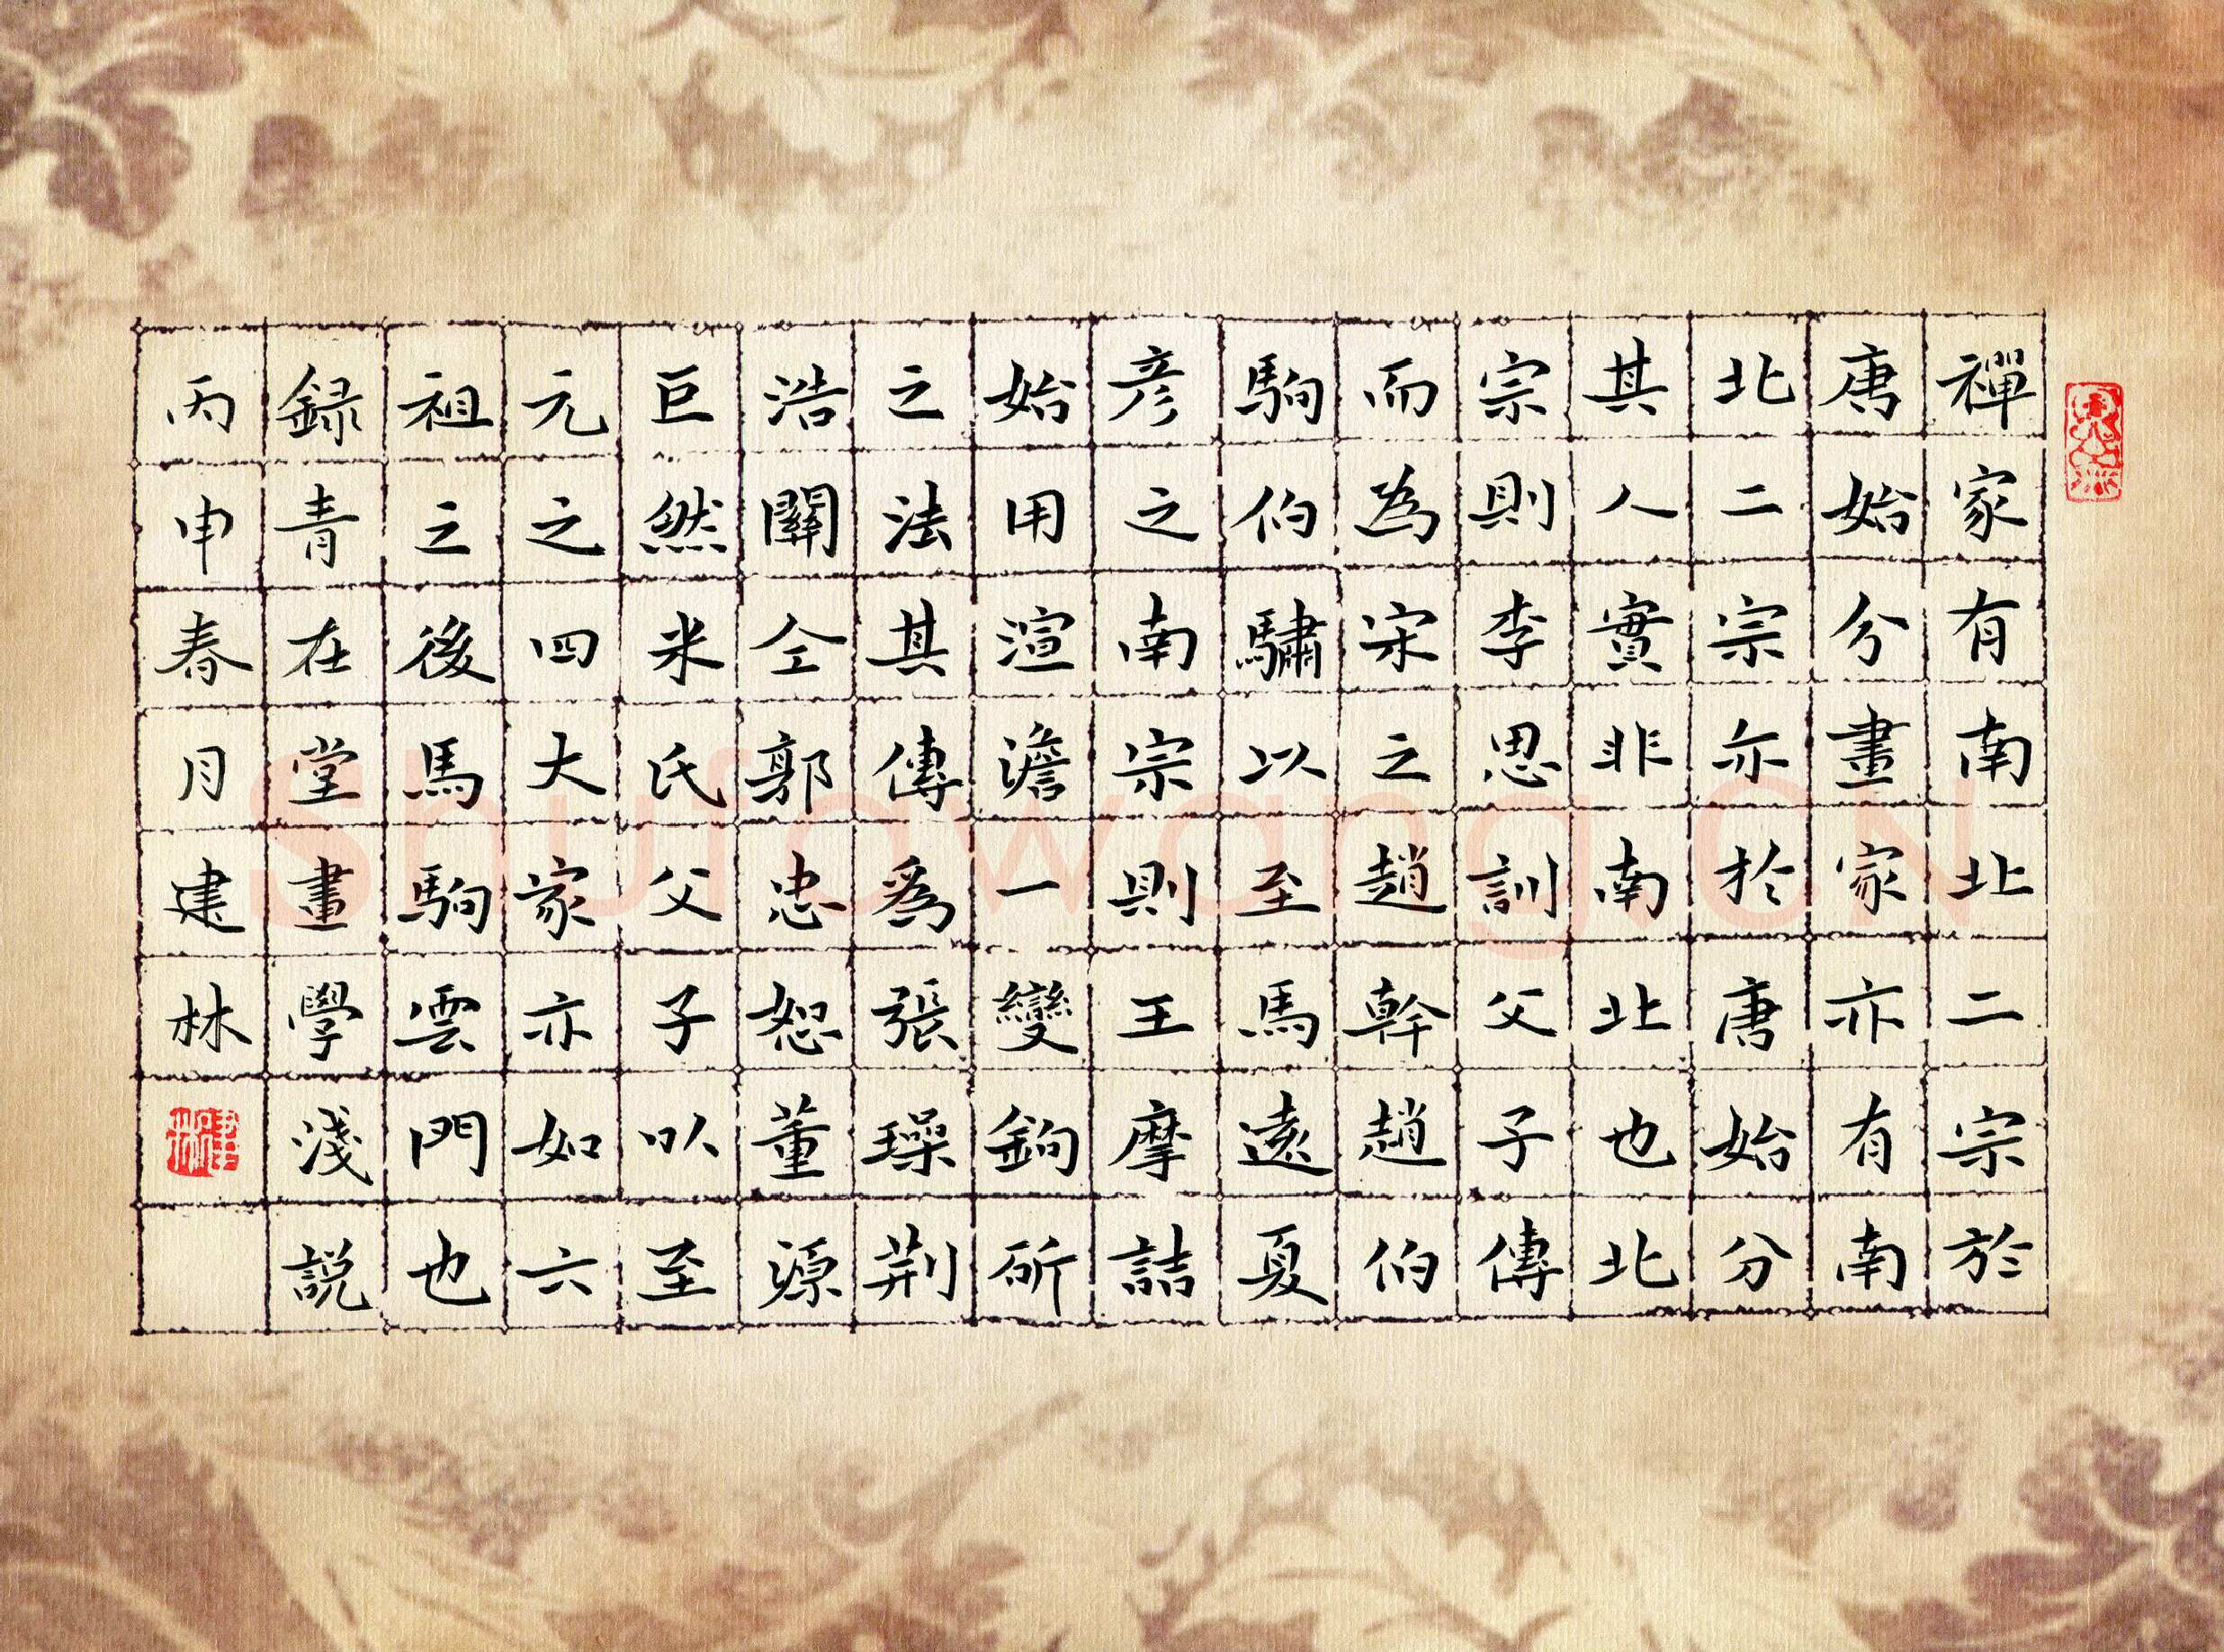 禪家有南北二宗於
唐始分畫家亦有南
北二宗亦於唐始分
其人實非南北也北
宗則李思訓父子傳
而為宋之趙幹趙伯
駒伯驌以至馬遠夏
彦之南宗則王摩詰
始用渲澹一變鉤斫
之法其傳為張璪荆
浩關仝郭忠恕董源
巨然米氏父子以至
元之四大家亦如六
祖之後馬駒雲門也
録青在堂畫學淺説
丙申春月建林
建林